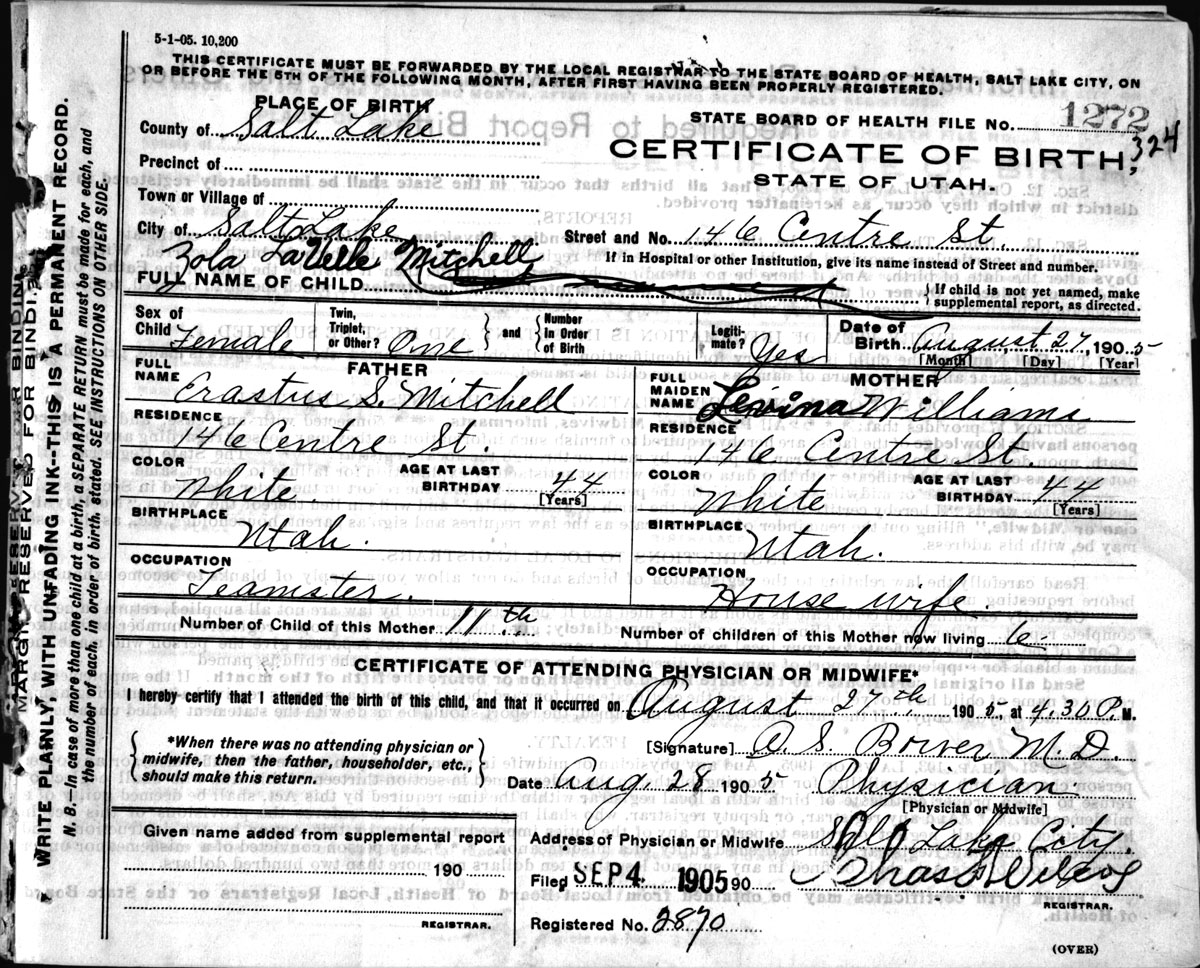 5-1-05. 10,200
THIS CERTIFICATE MUST BE FORWARDED BY THE LOCAL REGISTRAR TO THE STATE BOARD OF HEALTH, SALT LAKE CITY, ON
OR BEFORE THE 5TH OF THE FOLLOWING MONTH, AFTER FIRST HAVING BEEN PROPERLY REGISTERED.
PLACE OF BIRTH
STATE BOARD OF HEALTH FILE No. 1272
324
County of Salt Lake
CERTIFICATE OF BIRTH,
Precinct of
STATE OF UTAH.
Town or Village of
City of Salt Lake
Street and No. 146 Centre St.
Zola LaVelle Mitchell
If in Hospital or other Institution, give its name instead of Street and number.
FULL NAME OF CHILD
If child is not yet named, make
supplemental report, as directed.
Sex of
Child Female
Twin,
Triplet,
or Other? One
and
Number
in Order
of Birth
Legiti-
mate? Yes
Date of
Birth August 27, 1905
[Month] [Day] [Year]
FATHER
FULL
NAME Erastus S. Mitchell
RESIDENCE
146 Centre St.
COLOR
White
AGE AT LAST
BIRTHDAY 44
[Years]
BIRTHPLACE
Utah.
OCCUPATION
Teamster.
MOTHER
FULL
MAIDEN
NAME Levina Williams
RESIDENCE
146 Centre St.
COLOR
White
AGE AT LAST
BIRTHDAY 44
[Years]
BIRTHPLACE
Utah.
OCCUPATION
House wife.
Number of Child of this Mother 11th
Number of children of this Mother now living 6
CERTIFICATE OF ATTENDING PHYSICIAN OR MIDWIFE*
I hereby certify that I attended the birth of this child, and that it occurred on August 27th 1905, at 4.30 P. M.
*When there was no attending physician or
midwife, then the father, householder, etc.,
should make this return.
[Signature] D. S. Bower M. D.
Date Aug 28 1905 Physician.
[Physician or Midwife]
Given name added from supplemental report
190
REGISTRAR.
Address of Physician or Midwife Salt Lake City.
Filed SEP 4 1905 90
REGISTRAR.
Registered No. 2870
(OVER)
MARGIN RESERVED FOR BINDING
WRITE PLAINLY, WITH UNFADING INK--THIS IS A PERMANENT RECORD.
N. B.—In case of more than one child at a birth, a SEPARATE RETURN must be made for each, and
the number of each, in order of birth, stated. SEE INSTRUCTIONS ON OTHER SIDE.